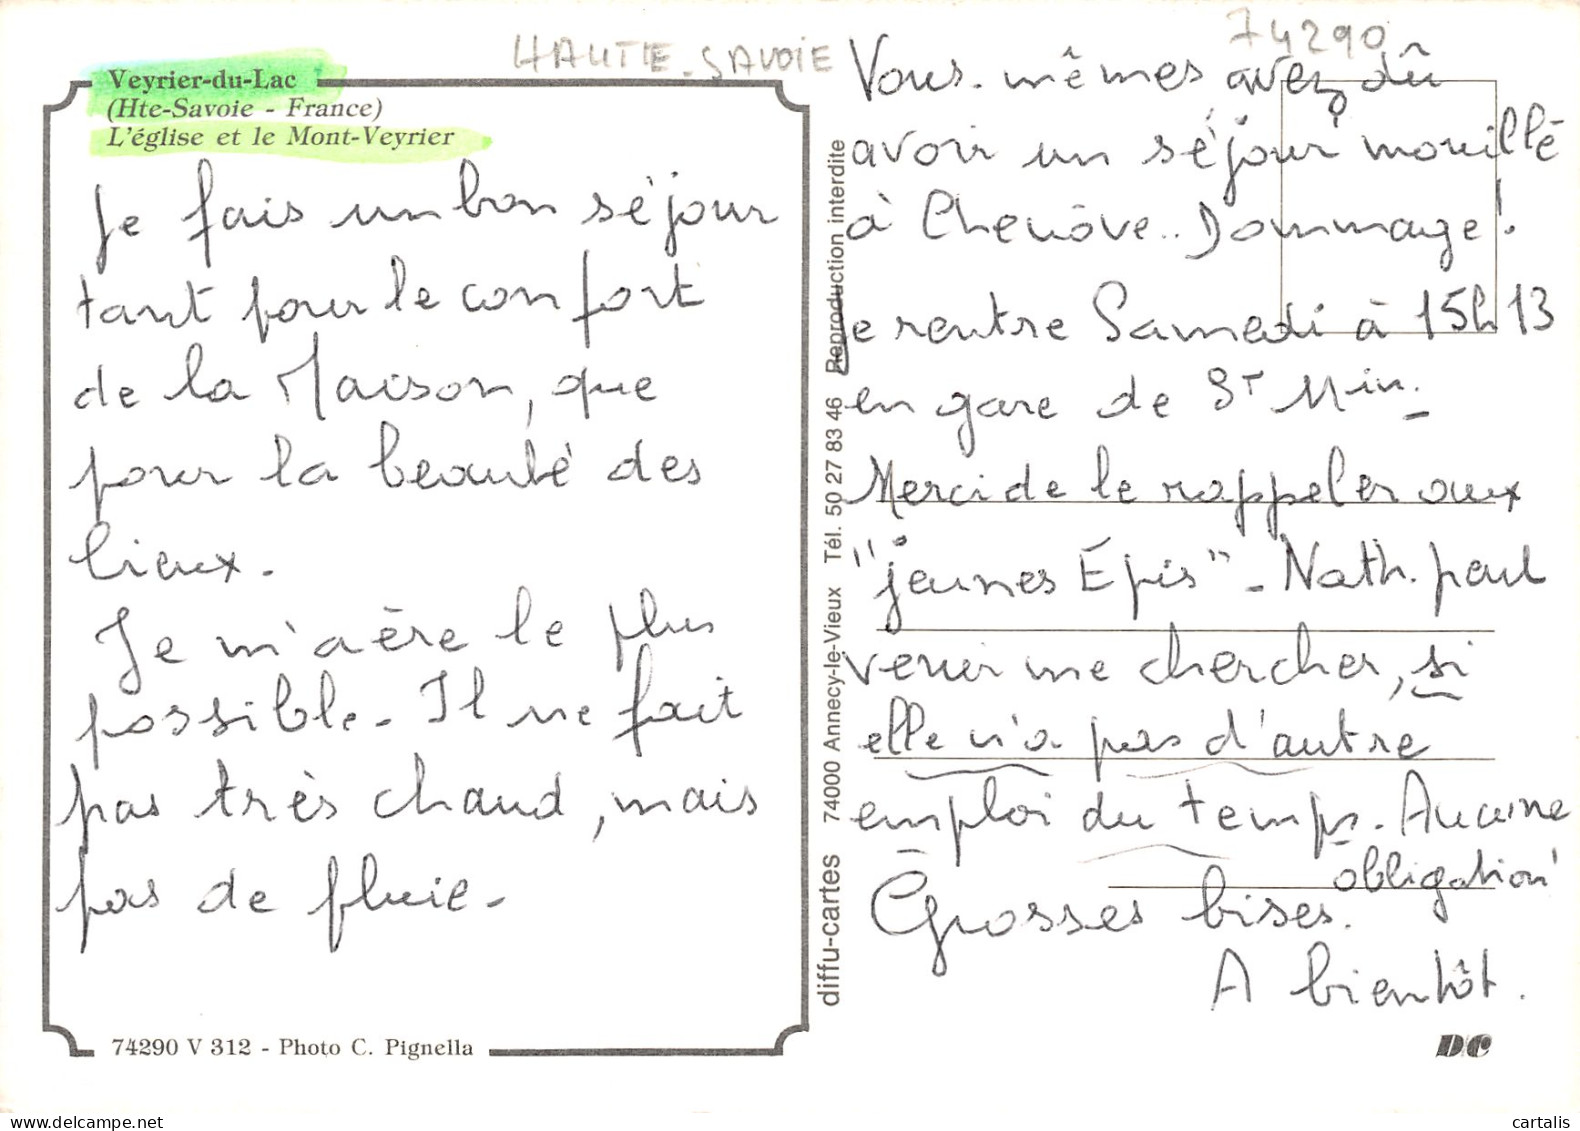 HAUTE-SAVOIE
74290
Veyrier-du-Lac
(Hte-Savoie - France)
L'église et le Mont-Veyrier
Je fais un bon séjour
tant pour le confort
de la Maison, que
pour la beauté des
lieux.
Je m'aère le plus
possible. Il ne fait
pas très chaud, mais
pas de pluie.
74290 V 312 - Photo C. Pignella
diffu-cartes 74000 Annecy-le-Vieux Tél. 50 27 83 46 Reproduction interdite
Vous-mêmes avez dû
avoir un séjour mouillé
à Chenôve.. Dommage!
Je rentre Samedi à 15h13
en gare de St Min.
Merci de le rappeler aux
"jeunes Epis" - Nath. peut
venir me chercher, si
elle n'a pas d'autre
emploi du temps. Aucune
obligation!
Grosses bises.
A bientôt.
DC
cartalis